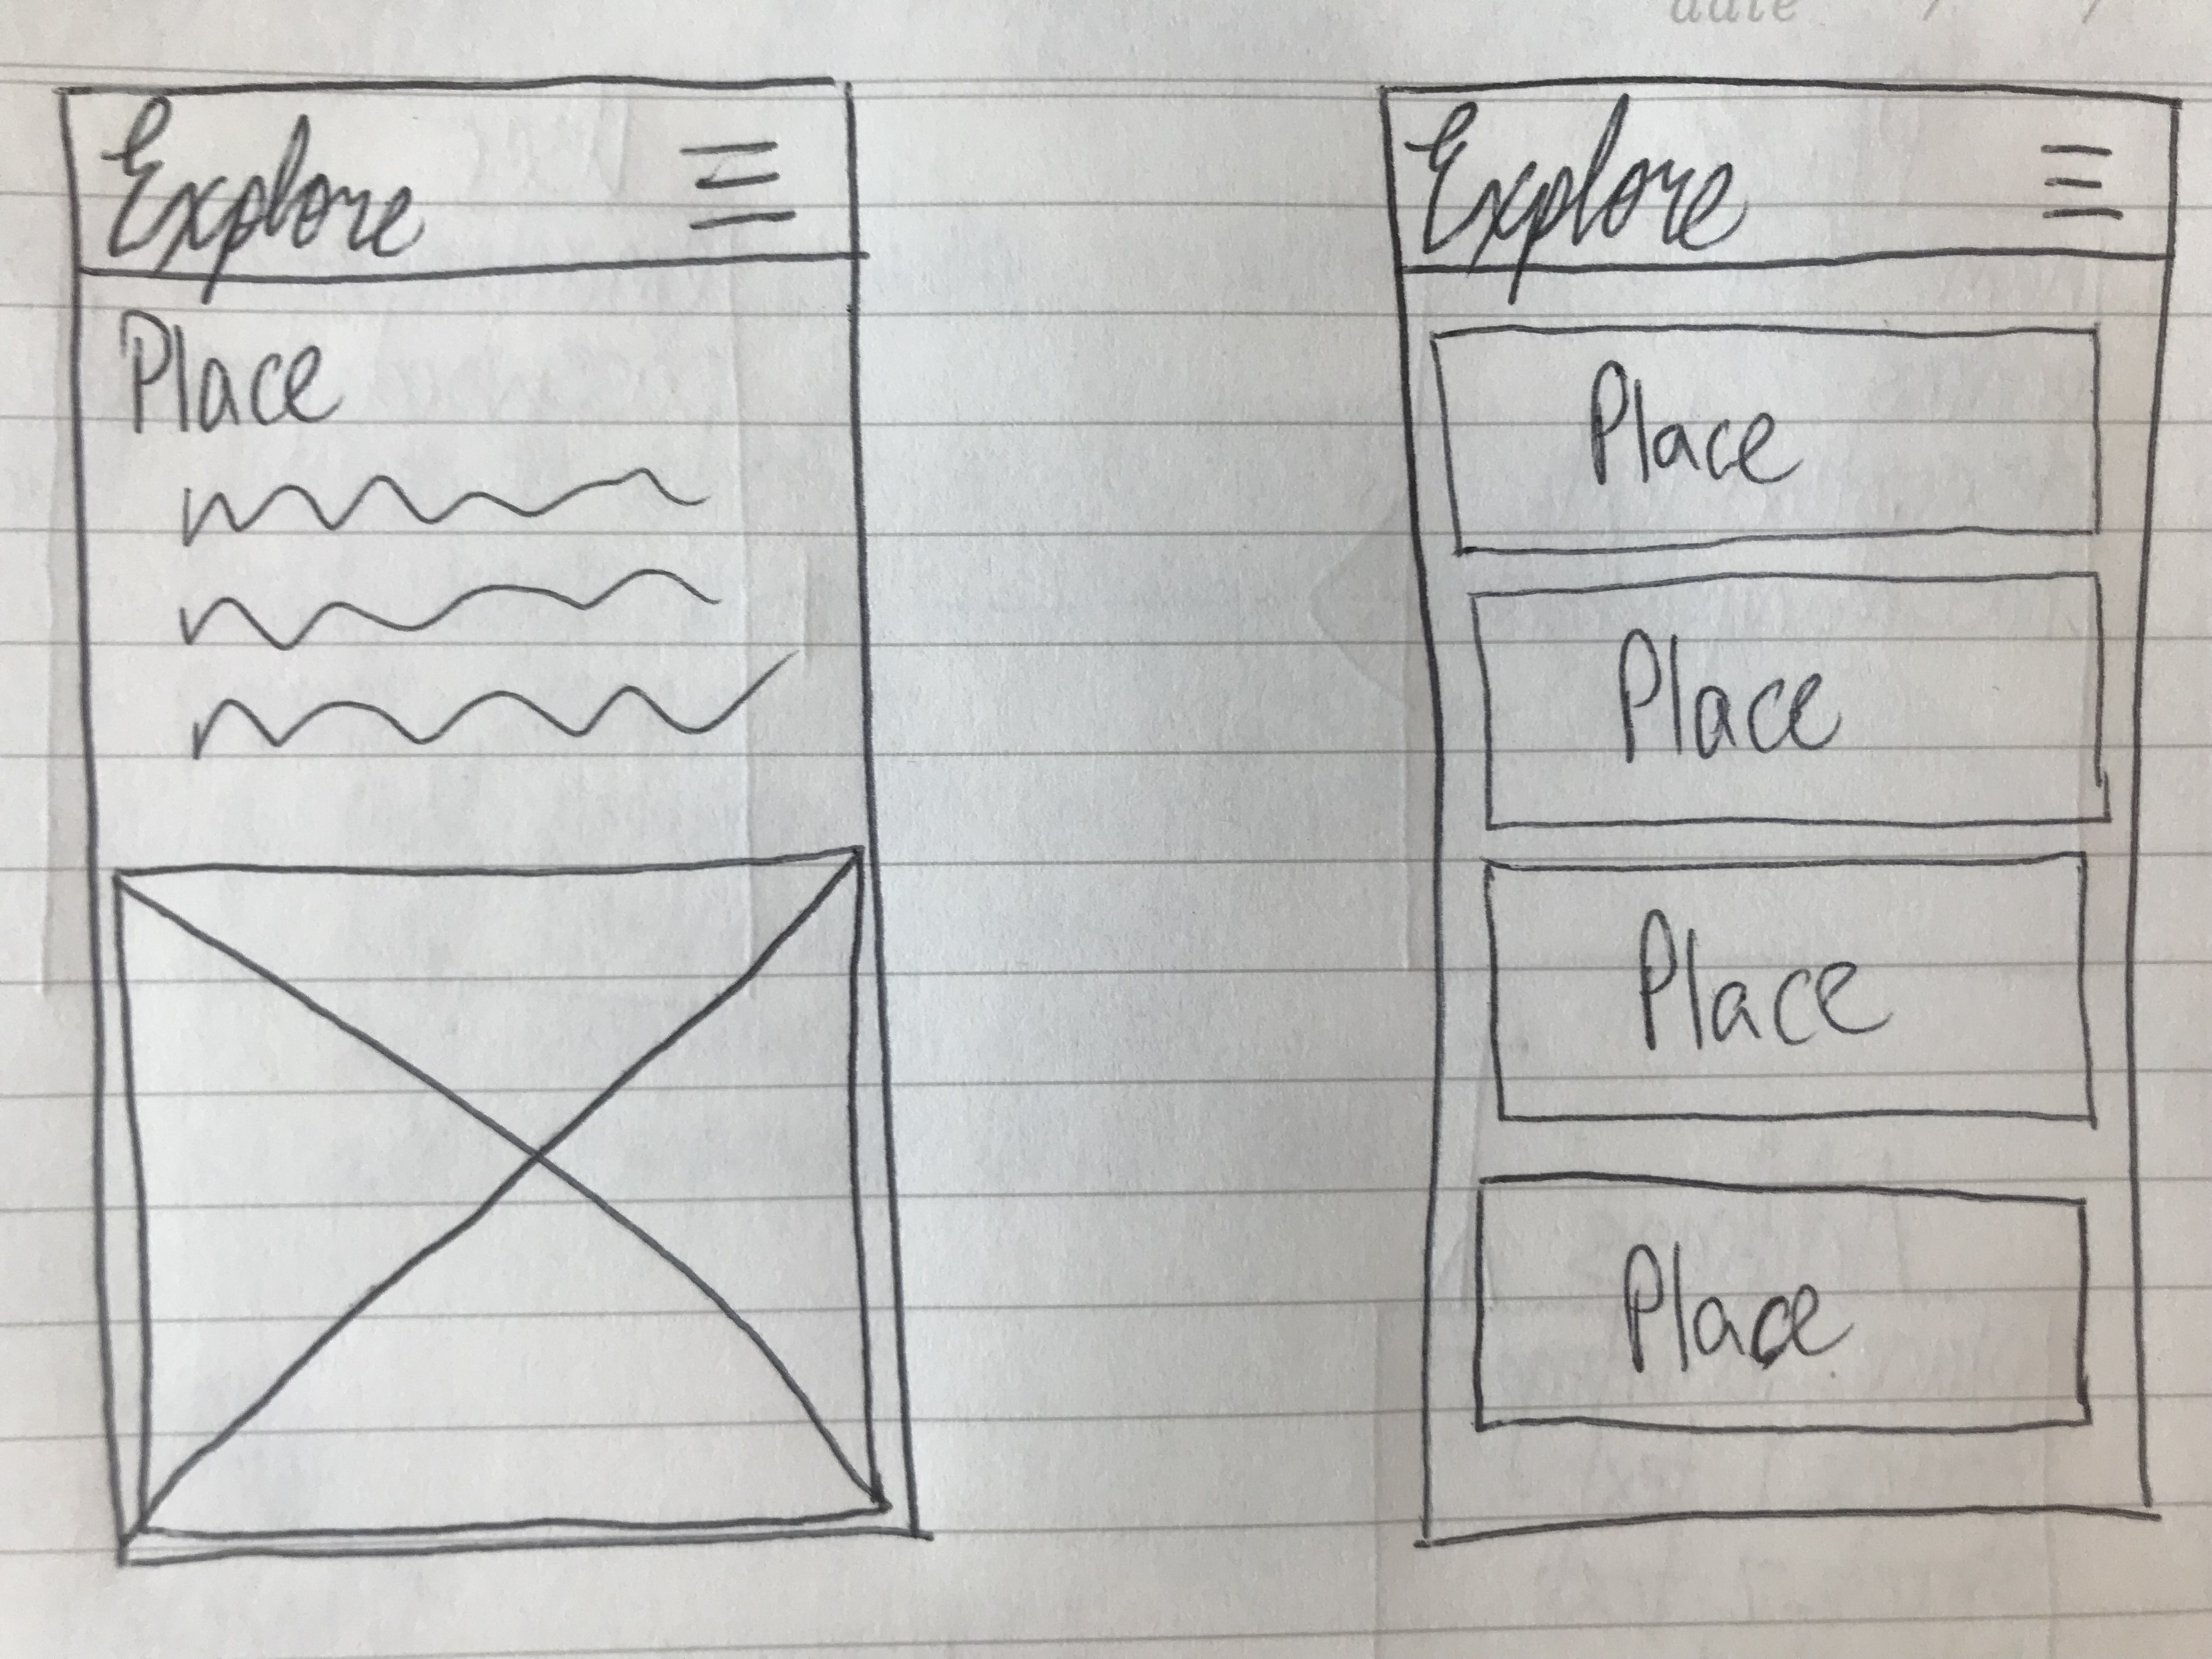 date / /
Explore
Place
Explore
Place
Place
Place
Place